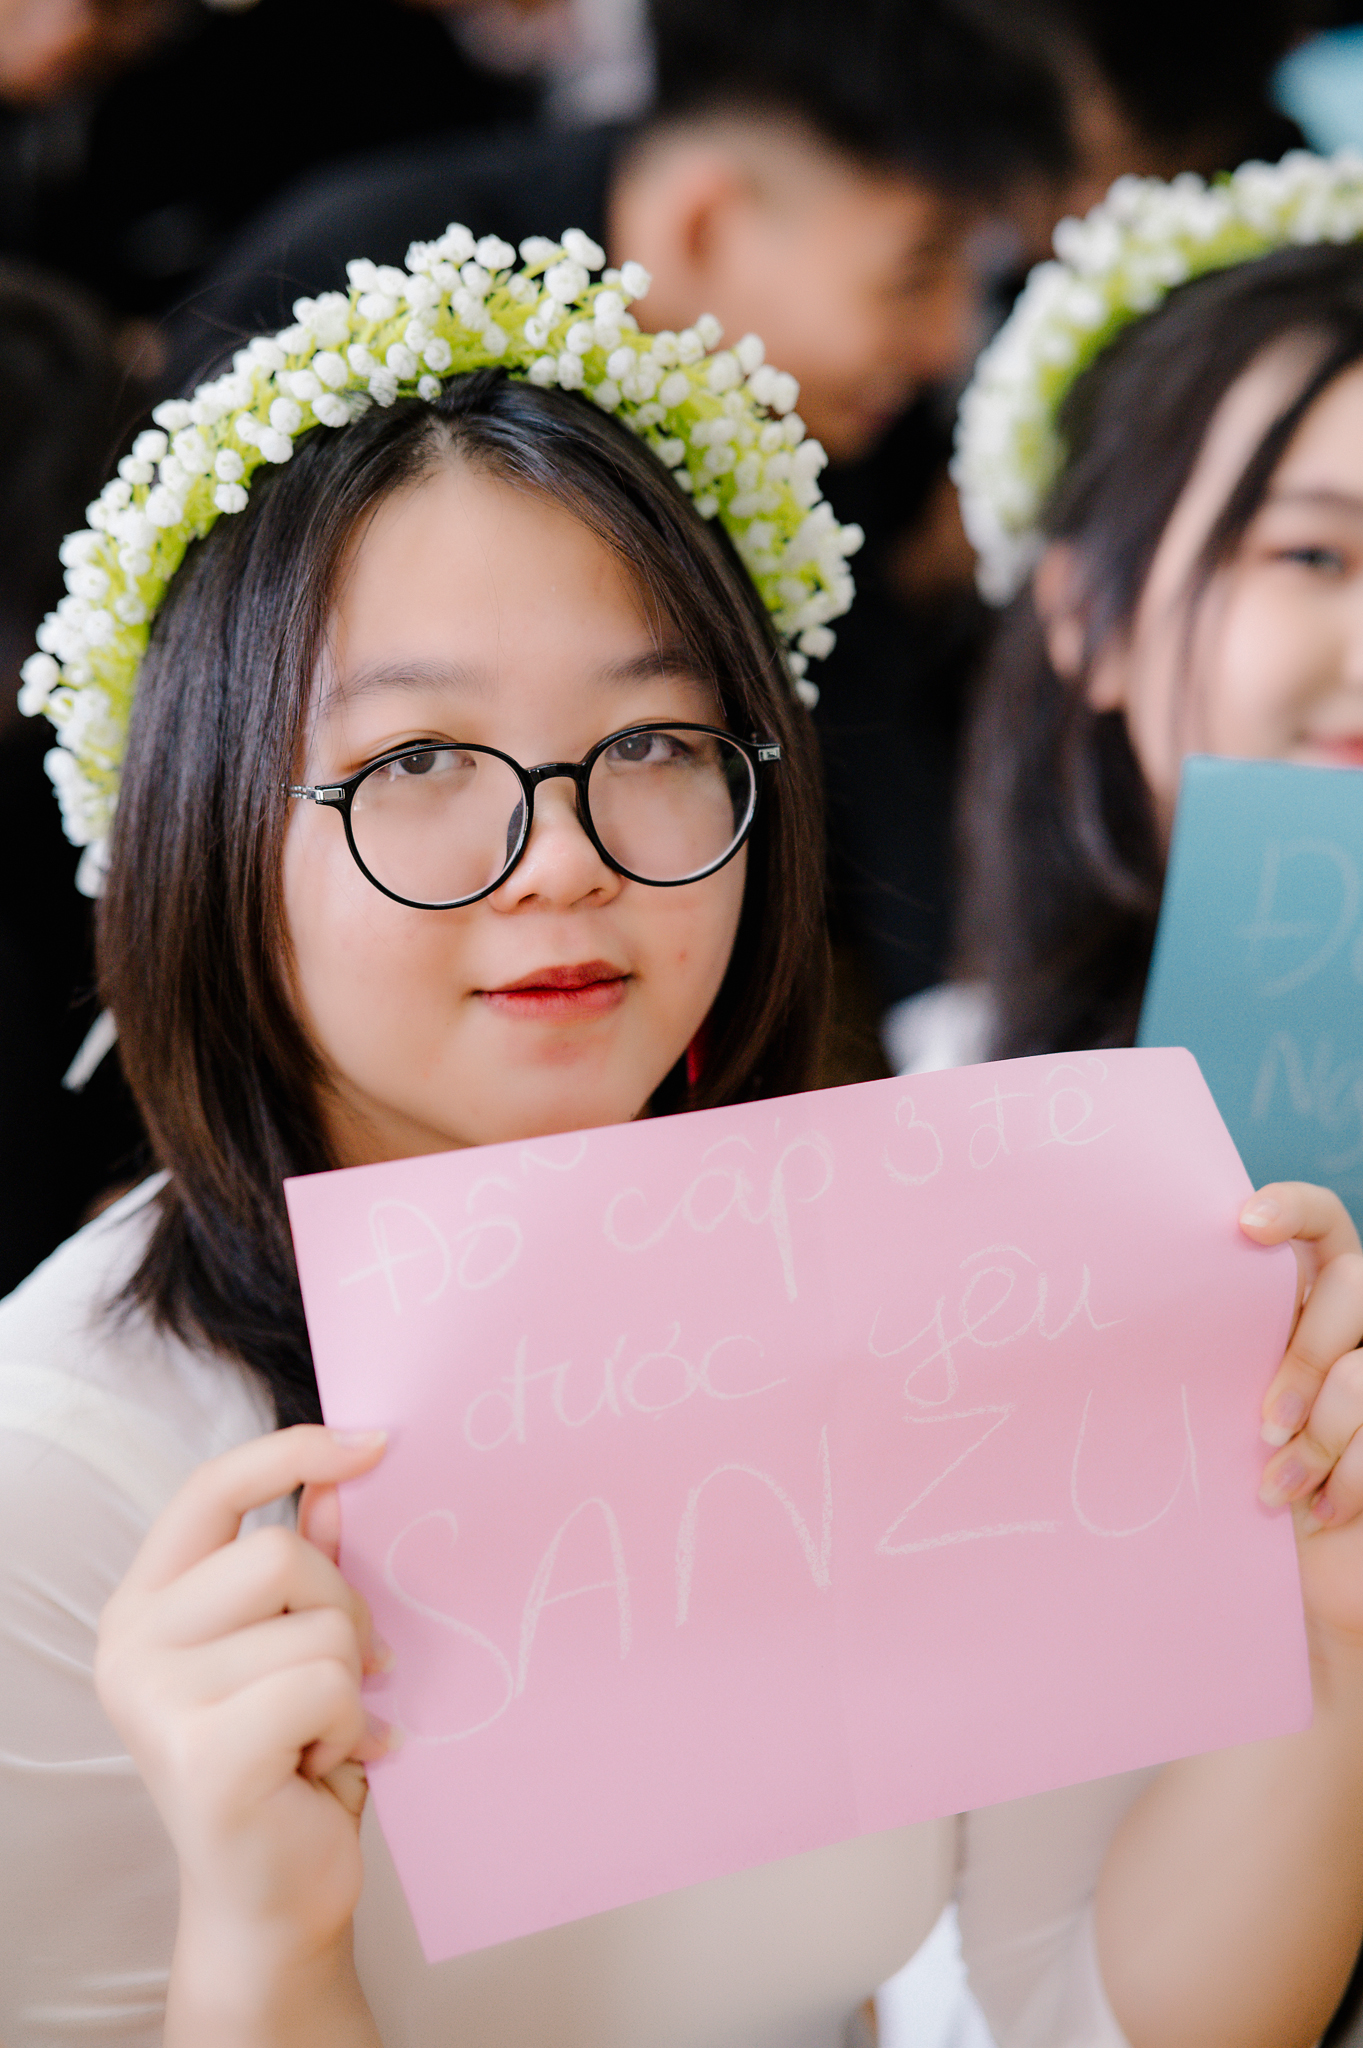 Đỗ cấp 3 để
được yêu
SANZU